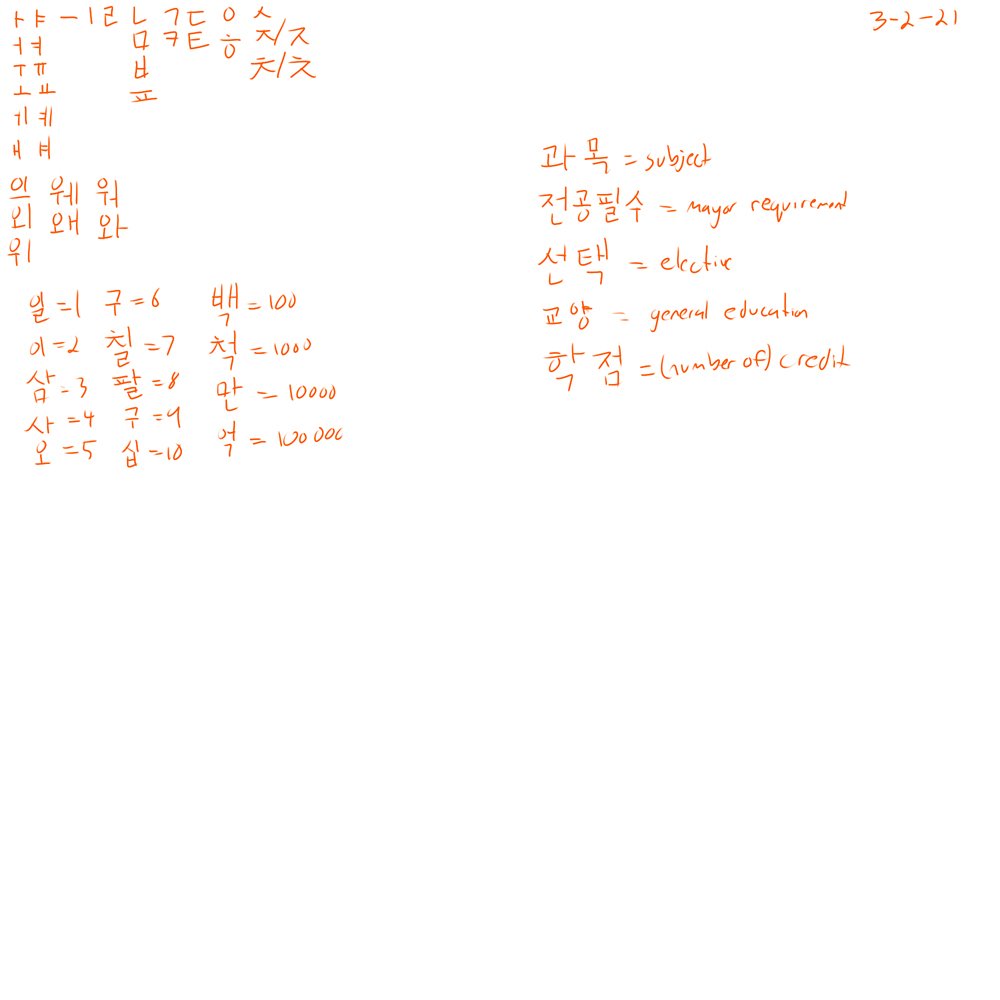 3-2-21
ㅏ ㅑ ㅡ ㅣ ㄹ ㄴ ㄱ ㄷ ㅇ ㅅ
ㅓ ㅕ ㅁ ㅋ ㅌ ㅎ ㅈ/ㅈ
ㅜ ㅠ ㅂ ㅊ/ㅊ
ㅗ ㅛ ㅍ
ㅔ ㅖ
ㅐ ㅒ
의 웨 워
외 왜 와
위
일 = 1 구 = 6 백 = 100
이 = 2 칠 = 7 척 = 1000
삼 = 3 팔 = 8 만 = 10000
사 = 4 구 = 9 억 = 100000
오 = 5 십 = 10
과목 = subject
전공필수 = mayor requirement
선택 = elective
교양 = general education
학점 = (number of) credit